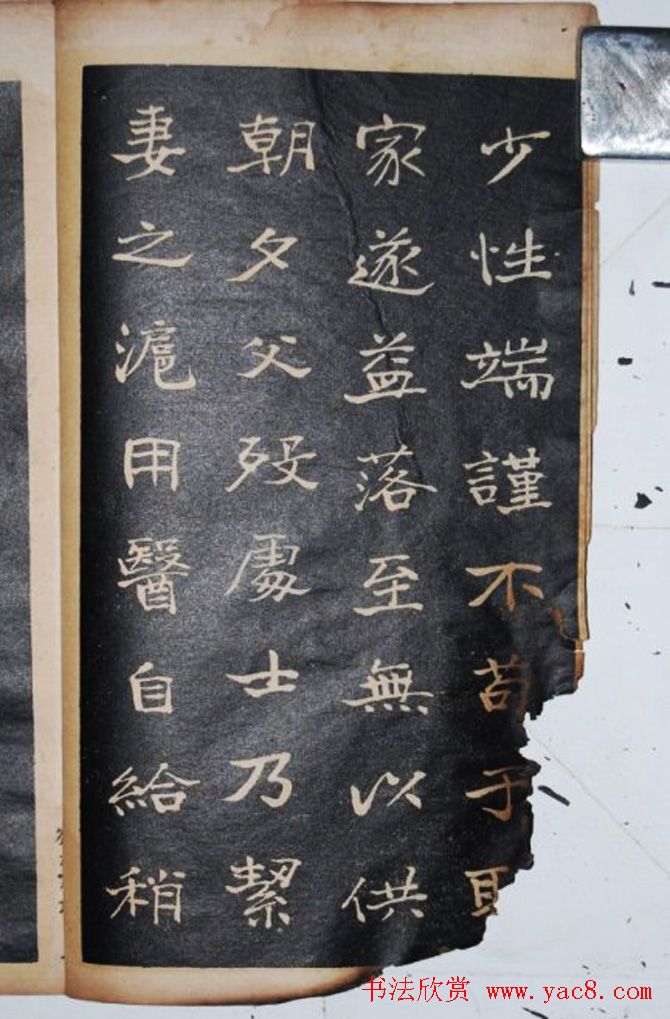 少性端謹不苟于
家遂益落至無以供
朝夕父歿處士乃絜
妻之滬用醫自給稍
书法欣赏 www.yac8.com